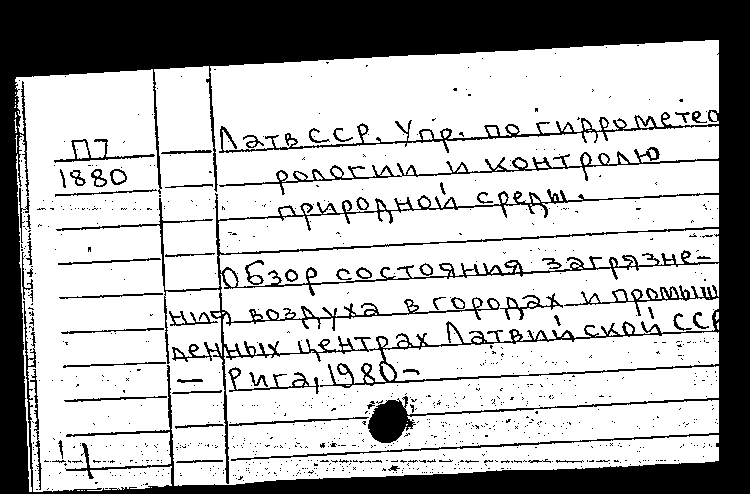 П7
1880
ЛатвССР. Упр. по гидрометео
рологии и контролю
природной среды.
Обзор состояния загрязне-
ния воздуха в городах и промыш
ленных центрах Латвийской ССР
— Рига, 1980-